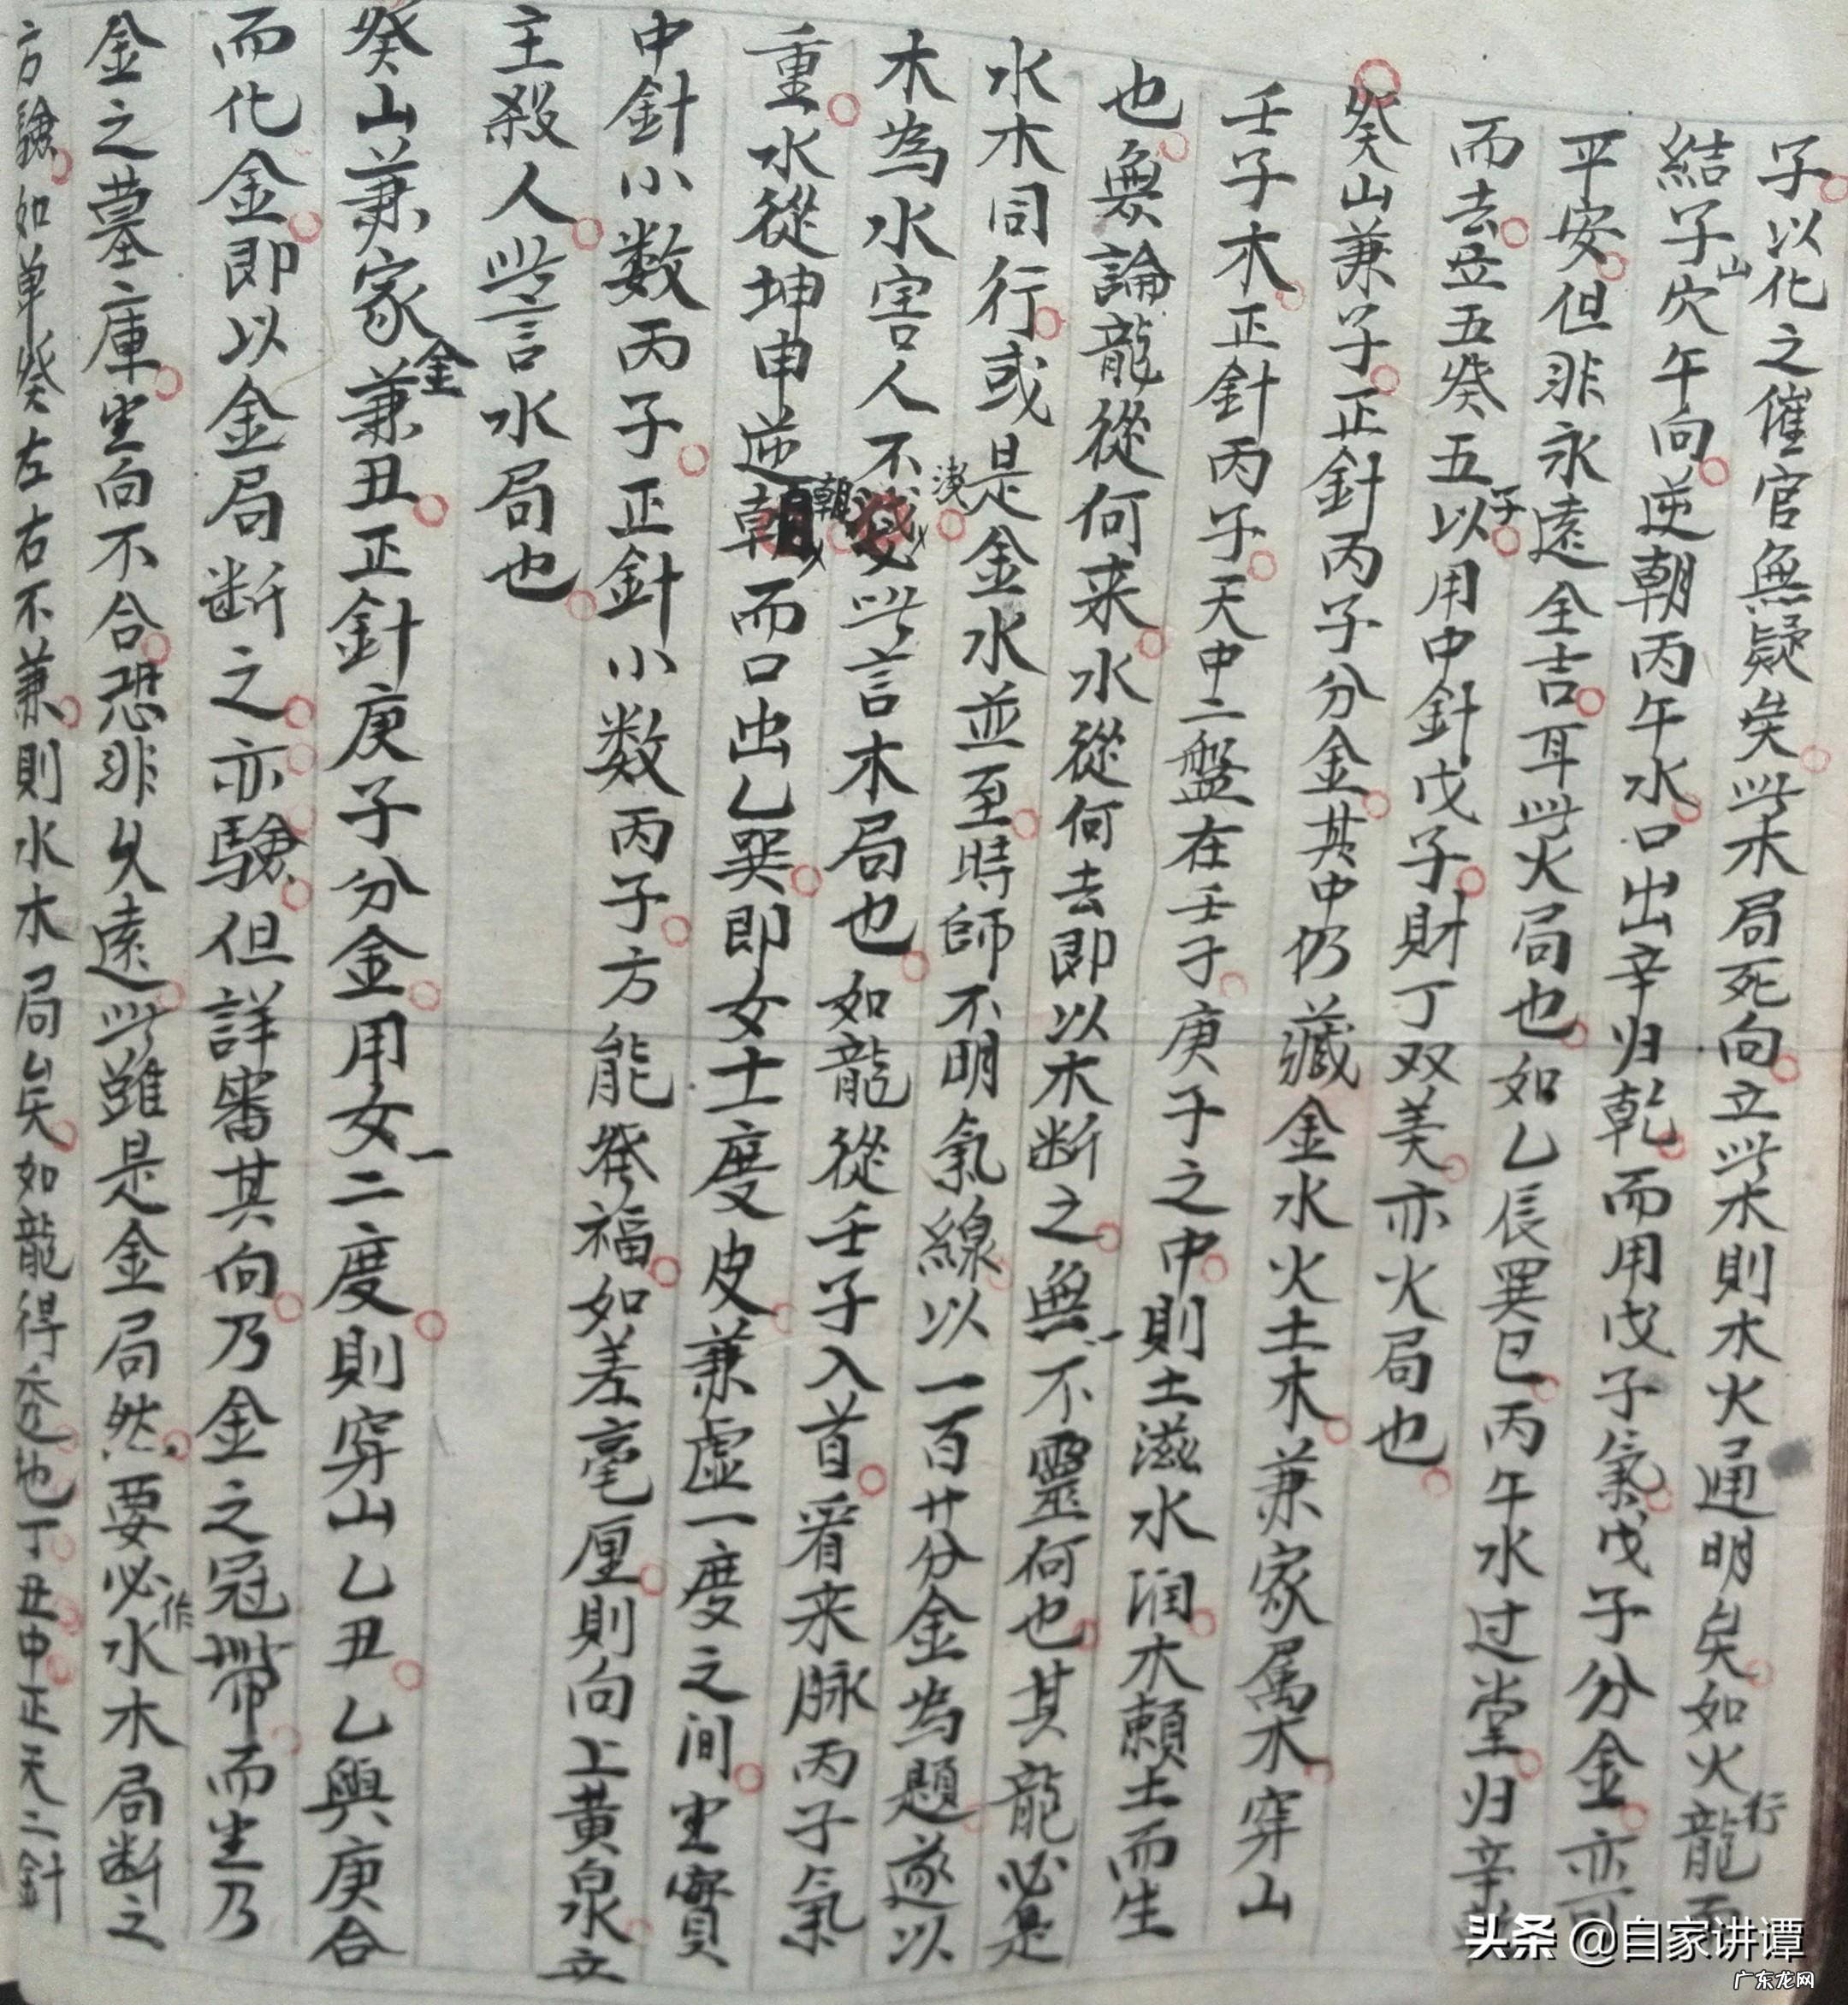 子以化之催官無疑矣此木局死向立此木則木火通明矣如火龍行而
結子山穴午向逆朝丙午水口出辛归乾而用戊子氣戊子分金亦可
平安但非永遠全吉耳此火局也如乙辰巽巳丙午水过堂归辛
而去立五癸五子以用中針戊子財丁双美亦火局也
癸山兼子正針丙子分金其中仍藏金水火土木兼家属水穿山
壬子木正針丙子天中二盤在壬子庚子之中則土滋水润木賴土而生
也無論龍從何来水從何去即以木断之無不靈何也其龍必是
水木同行或是金水並至時師不明氣線以一百廿分金為題遂以
木為水害人不浅此言木局也如龍從壬子入首看来脉丙子氣
重水從坤申逆朝而口出乙巽即女士度皮兼虚一度之间坐實
中針小数丙子正針小数丙子方能發福如差毫厘則向上黄泉立
主殺人此言水局也
癸山兼家金兼丑正針庚子分金用女二度則穿山乙丑乙與庚合
而化金即以金局断之亦驗但詳審其向乃金之冠帶而坐乃
金之墓庫坐向不合恐非久遠此雖是金局然要必作水木局断之
方驗如单癸左右不兼則水木局矣如龍得也丁丑中正天二針
头条 @自家讲谭
广东龙网